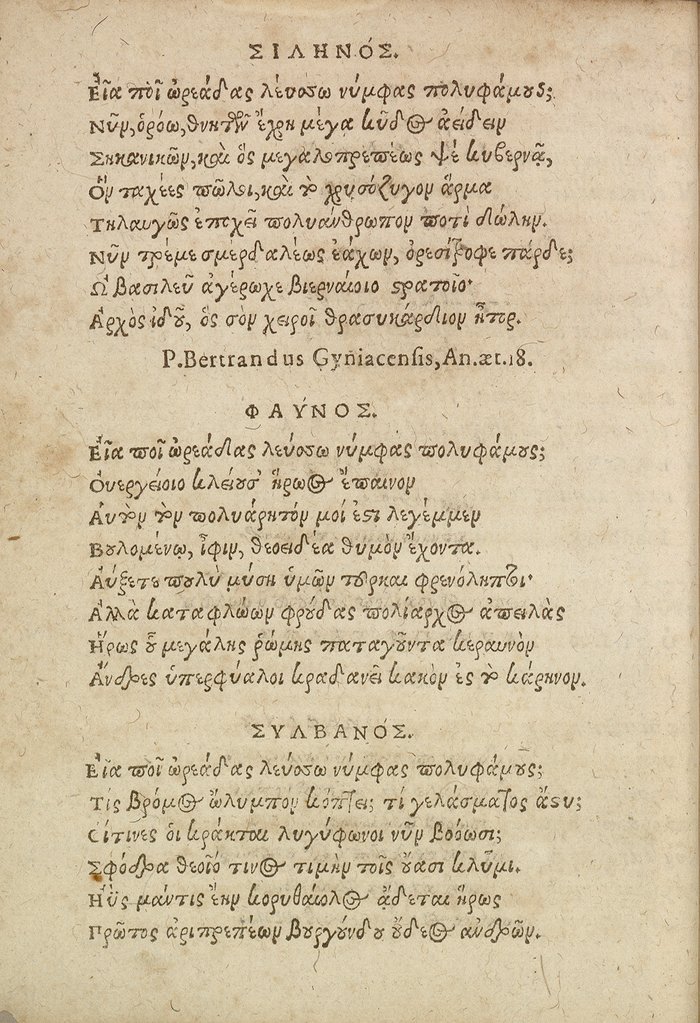 ΣΙΛΗΝΟΣ.
Εἶα ποῖ ὠρεάδας λεύσσω νύμφας πολυφάμους;
Νῦν, ὁρόω, θνητῶν ἔχρη μέγα κῦδος ἀείδειν
Σηκανικῶν, καὶ ὃς μεγαλοπρεπέως ψέ κυβερνᾷ,
Ὃν ταχέες πῶλοι, καὶ τὸ χρυσόζυγον ἅρμα
Τηλαυγῶς ἐπεχεῖ πολυάνθρωπον ποτὶ διώλην.
Νῦν τρέμε σμερδαλέως ἐάχων, ὀρεσίζοφε πάρδε;
Ω βασιλεῦ ἀγέρωχε βιερναίοιο στρατοῖο·
Ἀρχὸς ἰδοῦ, ὃς σὸν χειροῖ θρασυκάρδιον ἦτορ.
P. Bertrandus Gyniacensis, An. æt. 18.
ΦΑΥΝΟΣ.
Εἶα ποῖ ὠρεάδας λεύσσω νύμφας πολυφάμους;
Ουεργείοιο κλείουσ' ἥρωος ἔπαινον
Αυτὸν τὸν πολυάρητόν μοί ἐστι λεγέμμεν
Βουλομένῳ, ἶφιν, θεοειδέα θυμὸν ἔχοντα.
Αὔξετε πουλὺ μύση ὑμῶν τοῦρκαι φρενόληπτοι·
Αλλὰ καταφλώων φρούδας πολίαρχος ἀπειλὰς
Ἥρως οὗ μεγάλης ῥώμης παταγοῦντα κεραυνὸν
Ἄνδρες ὑπερφύαλοι κραδανεῖ κακὸν ἐς τὸ κάρηνον.
ΣΥΛΒΑΝΟΣ.
Εἶα ποῖ ὠρεάδας λεύσσω νύμφας πολυφάμους;
Τίς βρόμος ὤλυμπον κόπτει; τί γελάσματος ἄστυ;
Οἵτινες οἱ κράκται λυγύφωνοι νῦν βοόωσι;
Σφόδρα θεοῖό τινος τιμὴν τοῖς οὔασι κλῦμι.
Ηῢς μάντις ἔην κορυθαίολος ᾄδεται ἥρως
Πρῶτος ἀριπρεπέων βουργούνδου οὔδεος ἀνδρῶν.